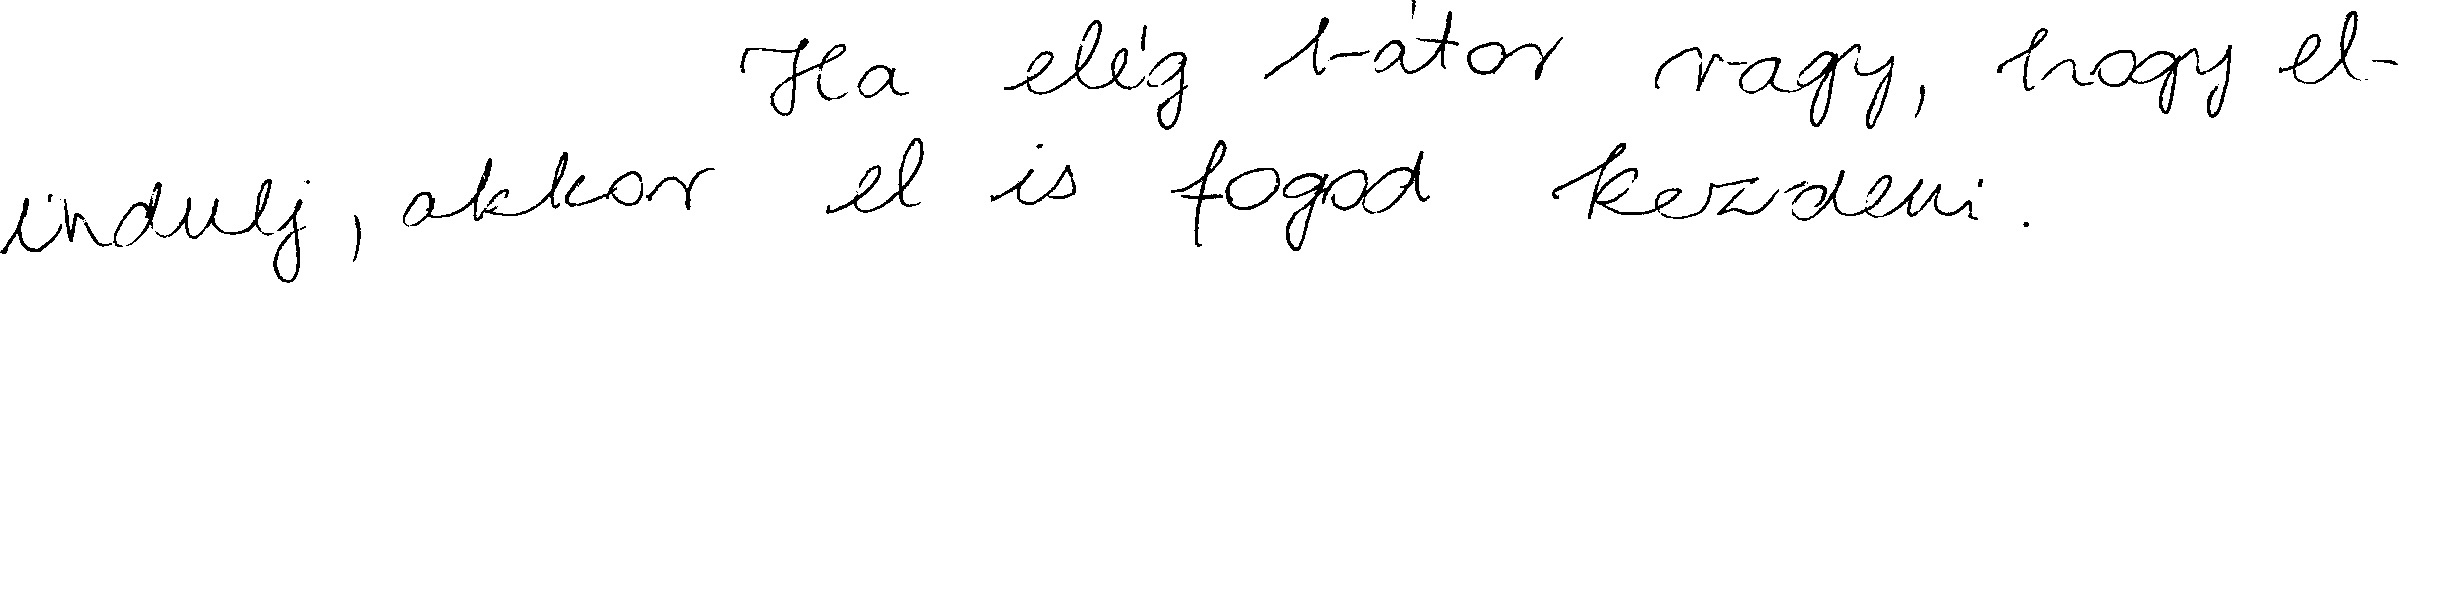 Ha elég bátor vagy, hogy el-
indulj, akkor el is fogod kezdeni.